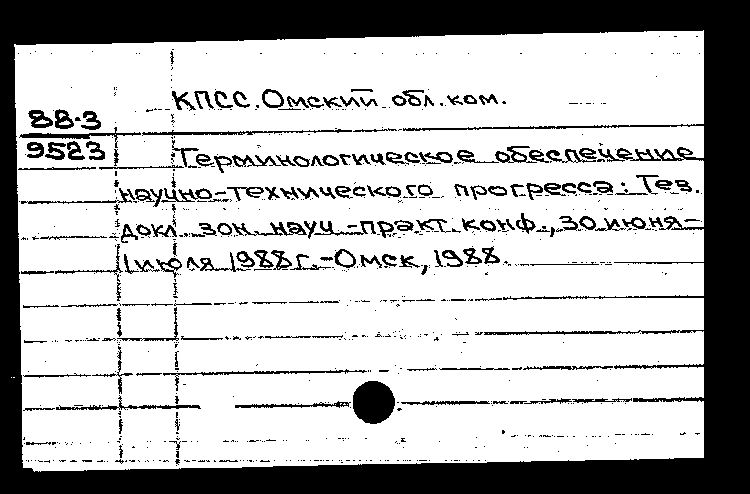 КПСС. Омский обл. ком.
88-3
9523
Терминологическое обеспечение
научно-технического прогресса: Тез.
докл. зон. науч.-практ. конф., 30 июня-
1 июля 1988 г.-Омск, 1988.